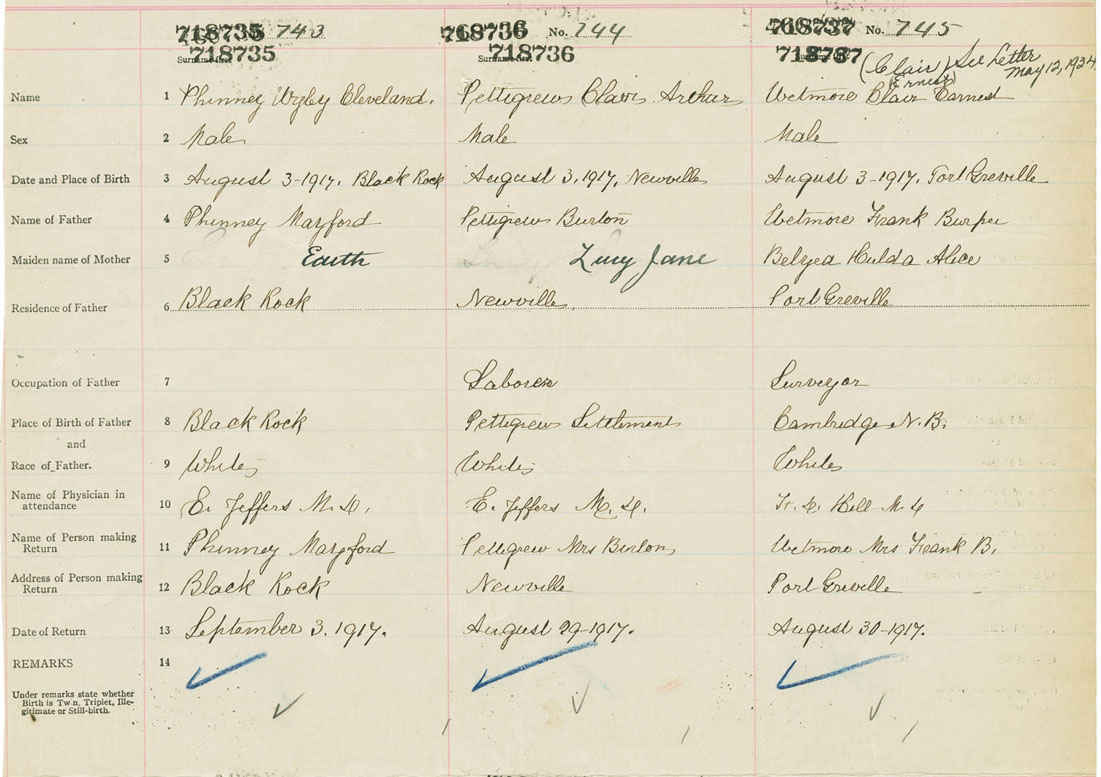 718735 743 718736 No. 744 718737 No. 745
718735 718736 718737
(Clair) See Letter
(Ernest) May 12, 1924
Name 1 Phinney Wyley Cleveland. Pettigrew Clavis Arthur Wetmore Clair Earnest
Sex 2 Male Male Male
Date and Place of Birth 3 August 3-1917. Black Rock August 3, 1917, Newville August 3-1917. Port Greville
Name of Father 4 Phinney Mayford Pettigrew Burton Wetmore Frank Burpee
Maiden name of Mother 5 Edith Lucy Jane Belyea Hulda Alice
Residence of Father 6 Black Rock Newville. Port Greville
Occupation of Father 7 Laborer Surveyor
Place of Birth of Father 8 Black Rock Pettigrew Settlement Cambridge N.B.
and
Race of Father. 9 White White White
Name of Physician in
attendance 10 E. Jeffers M.D. E. Jeffers M.D. Hill M.D
Name of Person making
Return 11 Phinney Mayford Pettigrew Mrs Burton Wetmore Mrs Frank B.
Address of Person making
Return 12 Black Rock Newville Port Greville
Date of Return 13 September 3. 1917. August 29-1917. August 30-1917.
REMARKS 14
Under remarks state whether
Birth is Twin, Triplet, Ille-
gitimate or Still-birth.